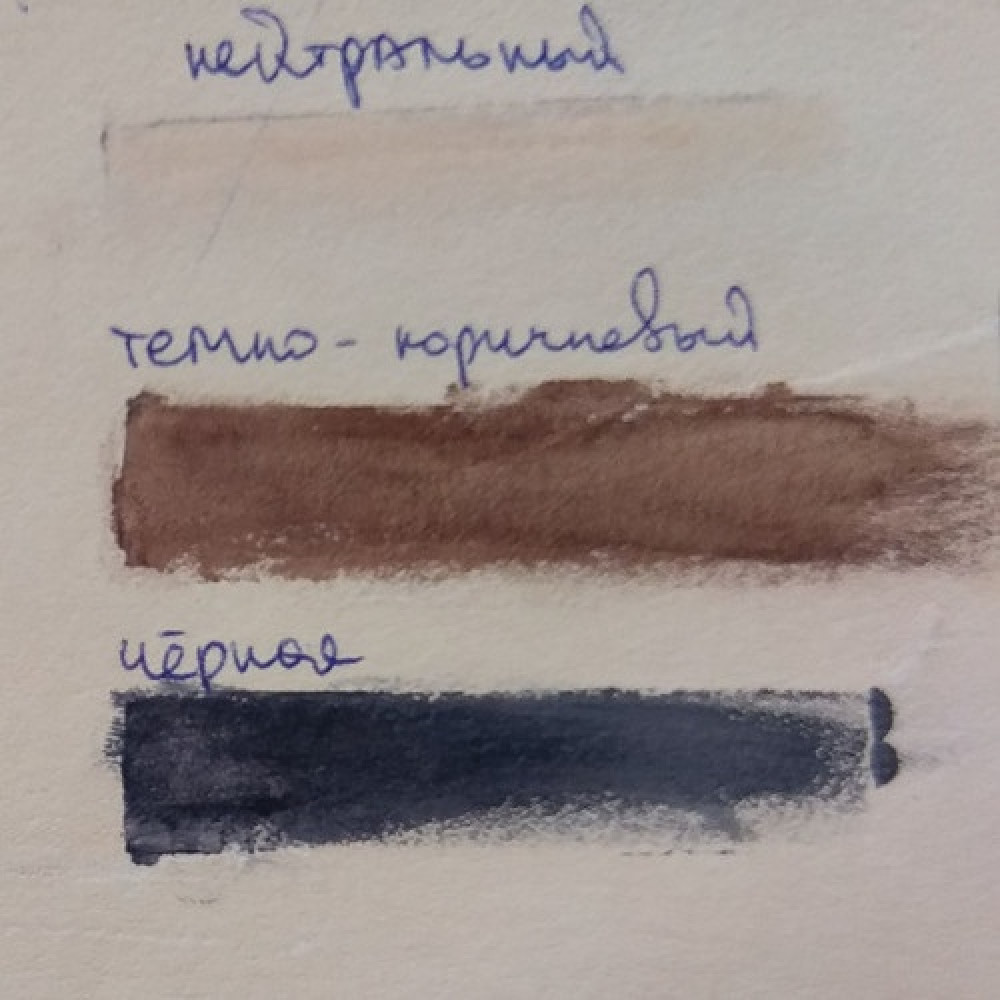 нейтральный
темно - коричневый
чёрная